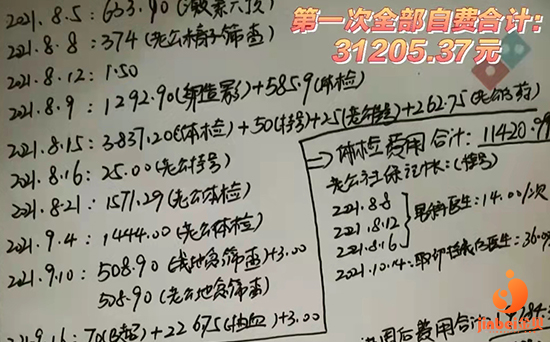 第一次全部自费合计:
31205.37元
2021.8.5:633.90(激素六项)
2021.8.8:374(老公精子筛查)
2021.8.12:1.50
2021.8.9:1292.90(造影)+585.9(体检)
2021.8.15:3837.20(体检)+50(挂号)+25(老公挂号)+262.75(老公药)
2021.8.16:25.00(老公挂号)
2021.8.21:1571.29(老公体检)
2021.9.4:1444.00(老公体检)
2021.9.10:508.90(地贫筛查)+3.00
508.90(老公地贫筛查)
21.9.16:70(B超)+22.675(抽血)+3.00
⇒体检费用合计:11420.99
老公社保记账:(挂号)
2021.8.8
2021.8.12
2021.8.16
男科医生:14.00/次
2021.10.14:取卵
费用合计:
jinbei